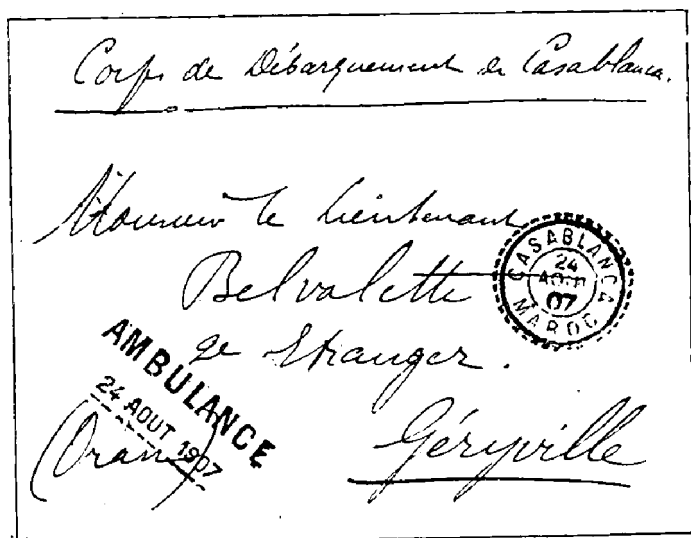 Corps de Débarquement de Casablanca.
Monsieur le Lieutenant
Belvalette
2e Etranger.
Géryville
(Oran)
AMBULANCE
24 AOUT 1907
CASABLANCA
24
AOUT
07
MAROC